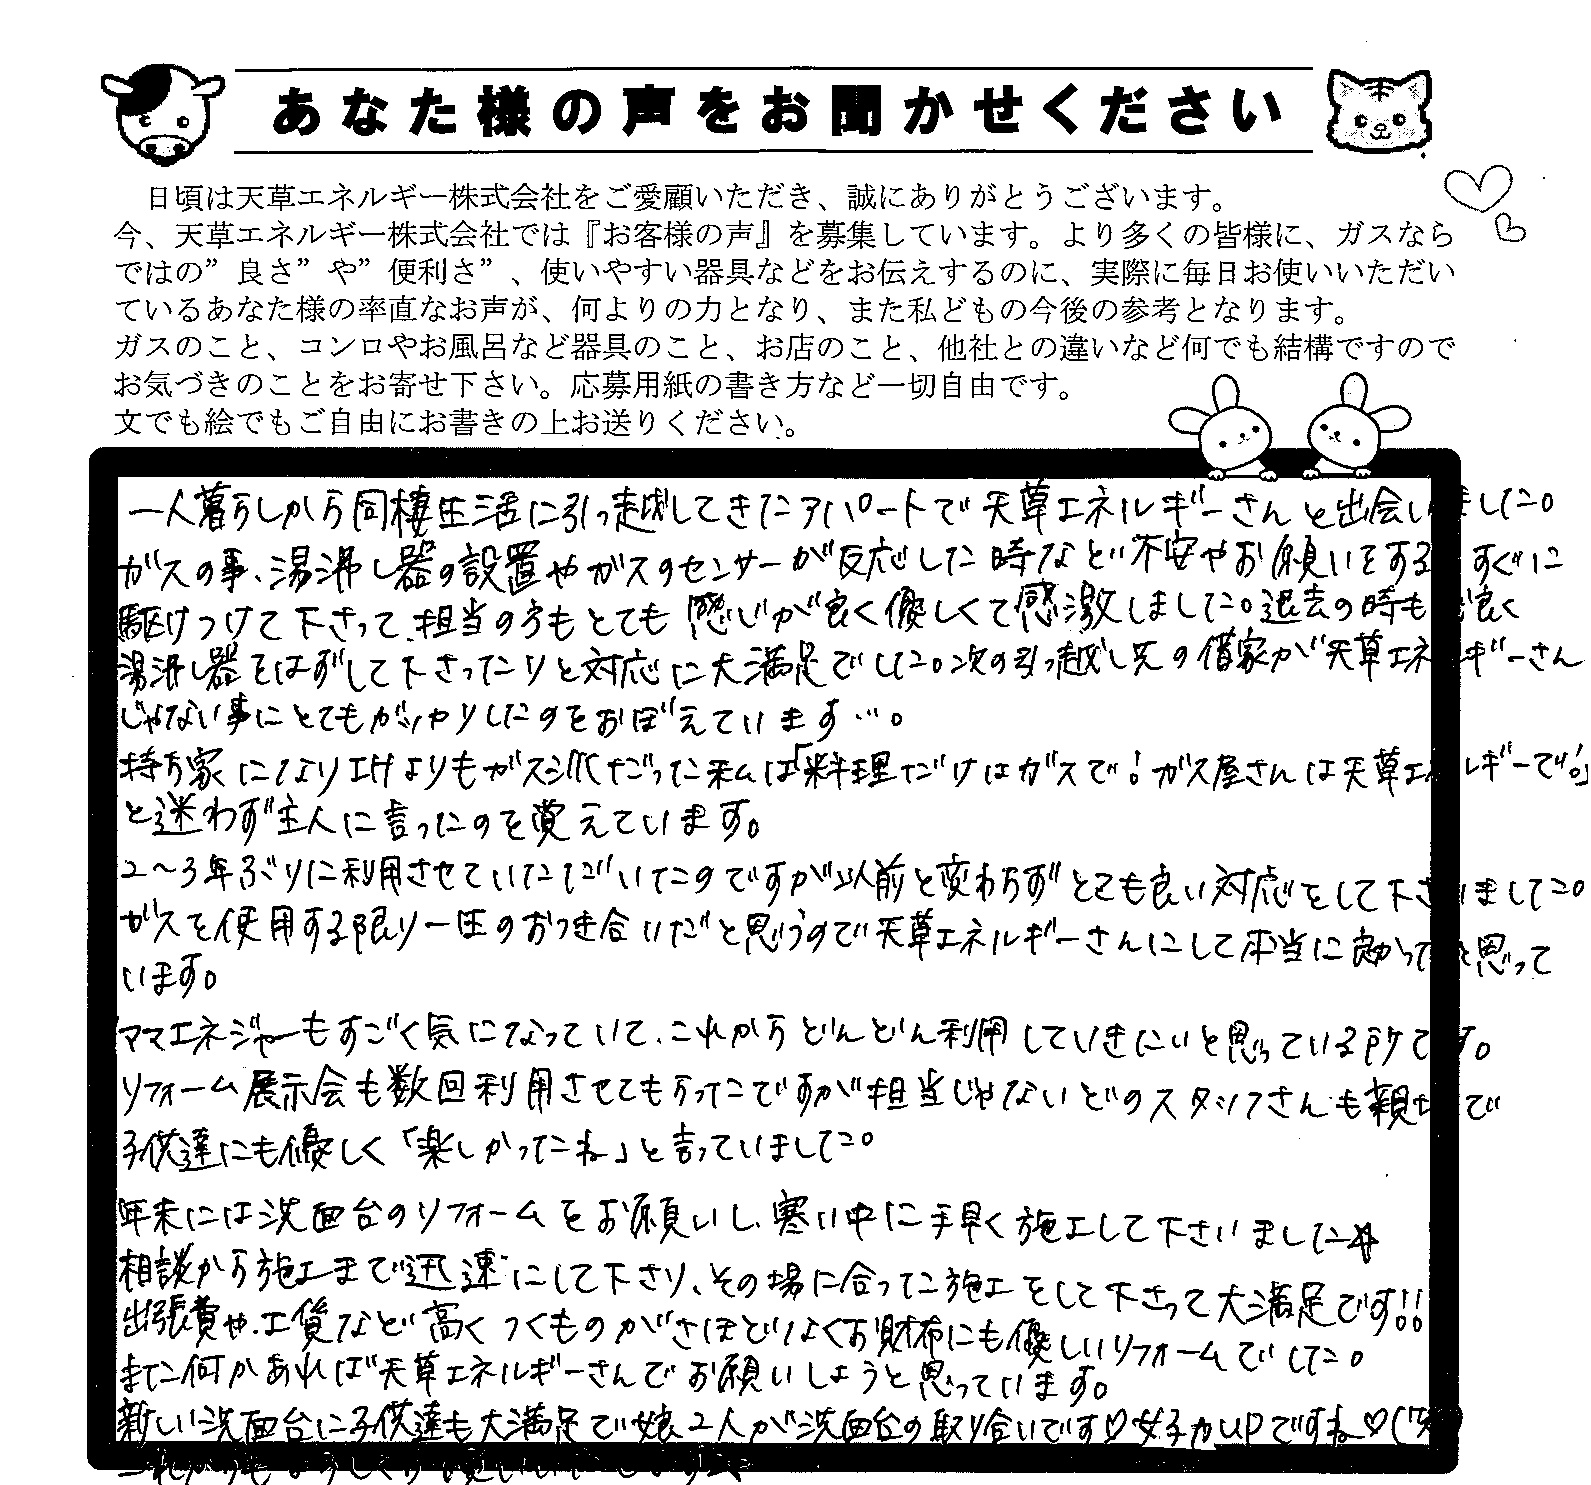 あなた様の声をお聞かせください
日頃は天草エネルギー株式会社をご愛顧いただき、誠にありがとうございます。
今、天草エネルギー株式会社では『お客様の声』を募集しています。より多くの皆様に、ガスなら
ではの”良さ”や”便利さ”、使いやすい器具などをお伝えするのに、実際に毎日お使いいただい
ているあなた様の率直なお声が、何よりの力となり、また私どもの今後の参考となります。
ガスのこと、コンロやお風呂など器具のこと、お店のこと、他社との違いなど何でも結構ですので
お気づきのことをお寄せ下さい。応募用紙の書き方など一切自由です。
文でも絵でもご自由にお書きの上お送りください。
一人暮らしから同棲生活に引っ越してきたアパートで天草エネルギーさんと出会いました。
ガスの事、湯沸し器の設置やガスのセンサーが反応した時など不安やお願いをする すぐに
駆けつけて下さって、担当の方もとても感じが良く優しくて感激しました。退去の時も 良く
湯沸し器をはずして下さったりと対応に大満足でした。次の引っ越し先の借家が天草エネルギーさん
じゃない事にとてもがっかりしたのをおぼえています…。
持ち家になりIHよりもガス派だった私は「料理だけはガスで！ガス屋さんは天草エネルギーで！」
と迷わず主人に言ったのを覚えています。
2〜3年ぶりに利用させていただいたのですが以前と変わらずとても良い対応をして下さいました。
ガスを使用する限り一生のおつき合いだと思うので天草エネルギーさんにして本当に良かったと思って
います。
ママエネジャーもすごく気になっていて、これからどんどん利用していきたいと思っている所です。
リフォーム展示会も数回利用させてもらったですが担当じゃないどのスタッフさんも親切で
子供達にも優しく「楽しかったね」と言っていました。
年末には洗面台のリフォームをお願いし、寒い中に手早く施工して下さいました☆
相談から施工まで迅速にして下さり、その場に合った施工をして下さって大満足です!!
出張費や、工賃など高くつくものがさほどなくお財布にも優しいリフォームでした。
また何かあれば天草エネルギーさんでお願いしようと思っています。
新しい洗面台に子供達も大満足で娘2人が洗面台の取り合いです♡女子力UPですね♡